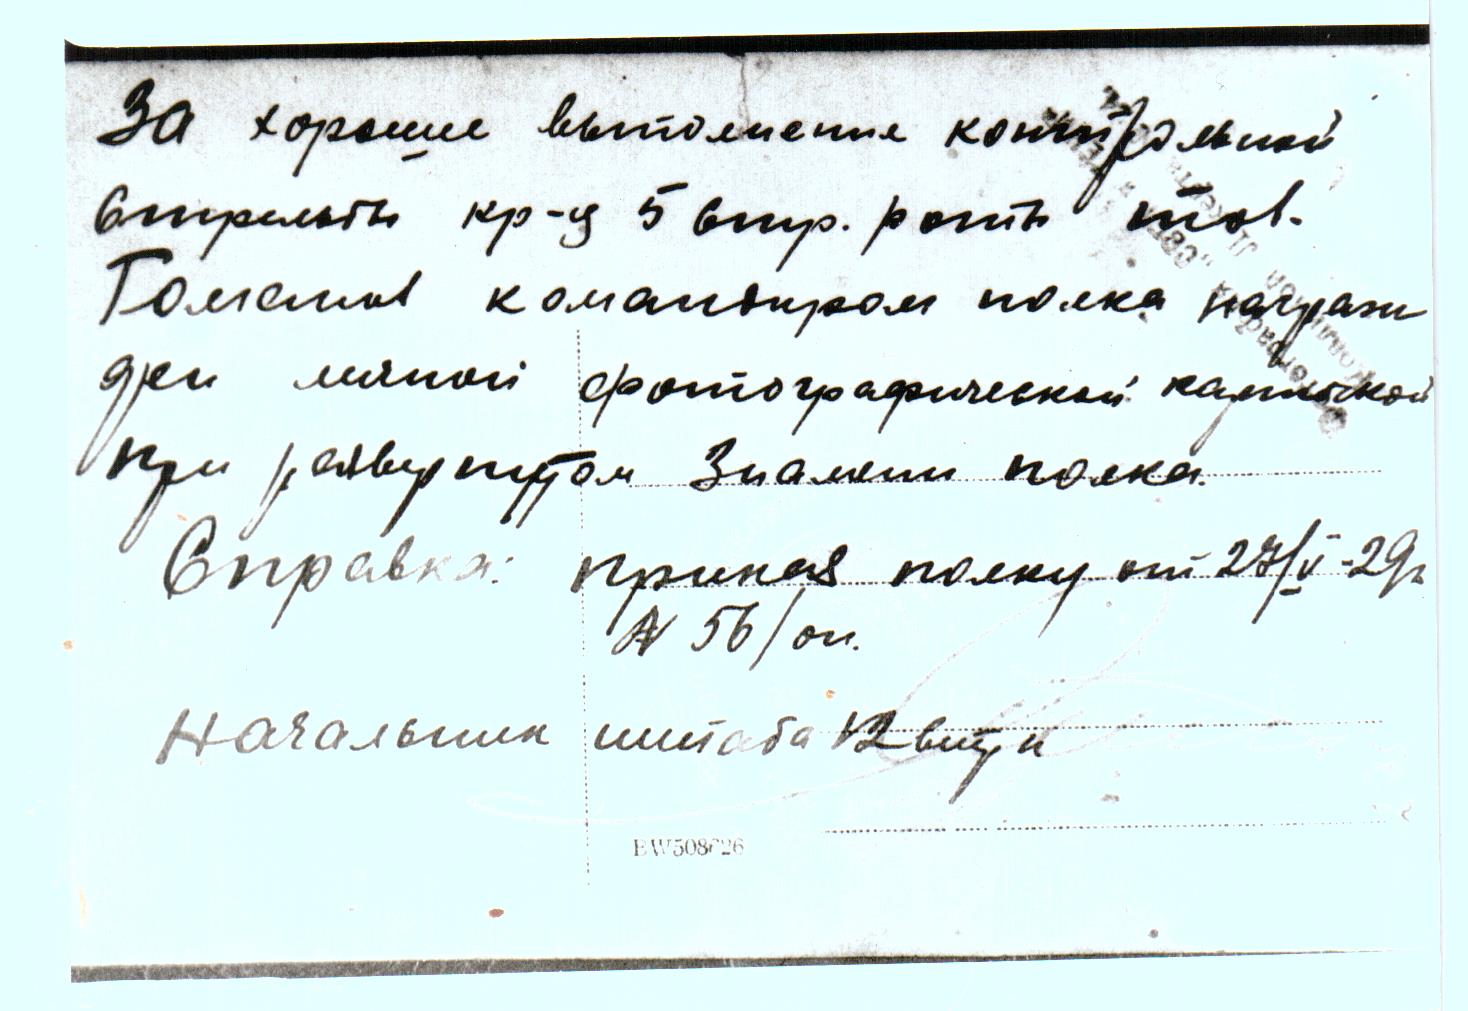 За хорошие выполнения контрольной
стрельбы кр-ц 5 стр. роты тов.
командиром полка награж
ден личной фотографической карточкой
при развернутом Знамени полка.
Справка: приказ полку от 27/V-29г
№ 56/оп.
Начальник штаба
EW508626